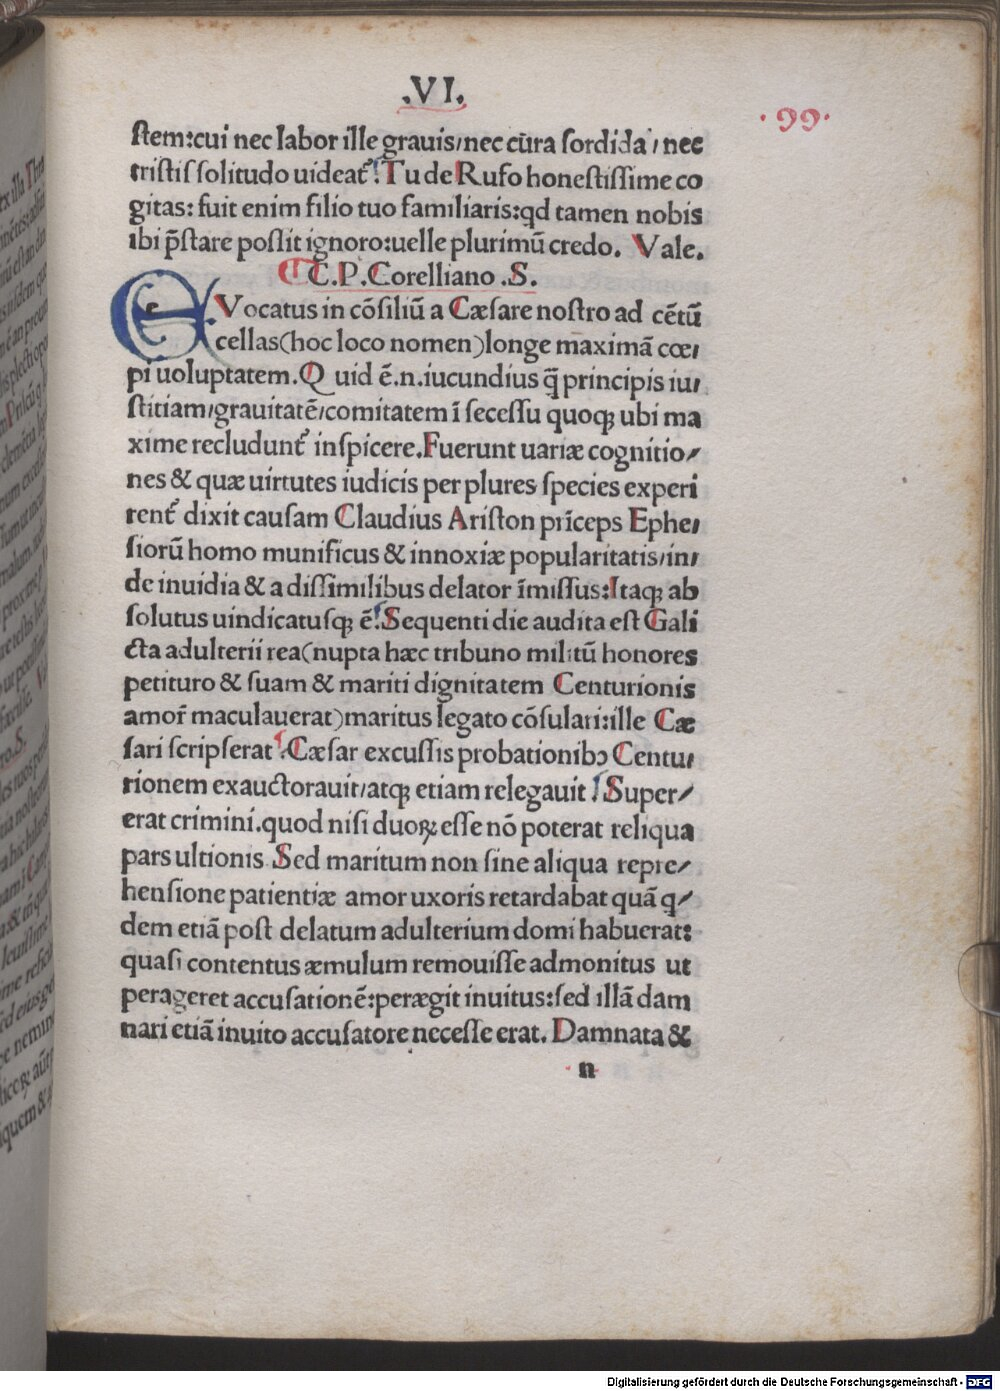 .VI.
.99.
ſtem:cui nec labor ille grauis/nec cūra ſordida / nec
triſtis ſolitudo uideat᷑. Tu de Rufo honeſtiſſime co
gitas: fuit enim filio tuo familiaris:qd tamen nobis
ibi p̄ſtare poſſit ignoro:uelle plurimū credo. Vale.
C.P.Corelliano .S.
EVocatus in cōſiliū a Cæſare noſtro ad cētū
cellas(hoc loco nomen)longe maximā cœ/
pi uoluptatem.Quid ē.n.iucundius q̄ principis iu/
ſtitiam/grauitatē/comitatem ī ſeceſſu quoqꝫ ubi ma
xime recludunt᷑ inſpicere.Fuerunt uariæ cognitio/
nes & quæ uirtutes iudicis per plures ſpecies experi
rent᷑ dixit cauſam Claudius Ariſton prīceps Ephe/
ſiorū homo munificus & innoxiæ popularitatis/in/
de inuidia & a diſſimilibus delator īmiſſus:Itaqꝫ ab
ſolutus uindicatuſqꝫ ē.Sequenti die audita eſt Gali
cta adulterii rea(nupta hæc tribuno militū honores
petituro & ſuam & mariti dignitatem Centurionis
amor̄ maculauerat)maritus legato cōſulari:ille Cæ
ſari ſcripſerat.Cæſar excuſſis probationibꝰ Centu/
rionem exauctorauit/atqꝫ etiam relegauit.Super/
erat crimini.quod niſi duoꝝ eſſe nō poterat reliqua
pars ultionis Sed maritum non ſine aliqua repre/
henſione patientiæ amor uxoris retardabat quā q/
dem etiā poſt delatum adulterium domi habuerat:
quaſi contentus æmulum remouiſſe admonitus ut
perageret accuſationē:peræegit inuitus:ſed illā dam
nari etiā inuito accuſatore neceſſe erat. Damnata &
n
Digitalisierung gefördert durch die Deutsche Forschungsgemeinschaft - DFG